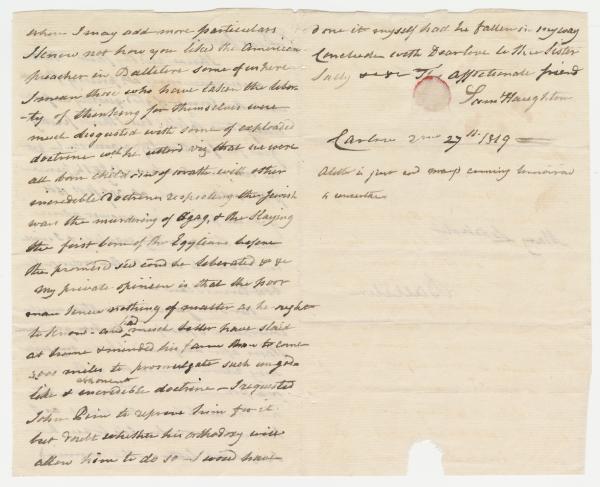 where I may add more particulars
I know not how you like the American
preacher in Ballitore some of us here
I mean those who have taken the liber-
-ty of thinking for themselves were
much disgusted with some of exploded
doctrine wch he utterd viz that we were
all born children of wrath with other
incredible Doctrines respecting the Jewish
wars the murdering of Agag, & the Slaying
the first born of the Egyptians before
the promised seed could be liberated & &c
My private opinion is that the poor
man knew nothing of matter as he ought
to know - and had much better have staid
at home & minded his farm than to come
3000 miles to promulgate such ungod-
like & incredible doctrine - I requested
John Pim to reprove him for it
but doubt whether his orthodoxy will
allow him to do so - I woud have
done it myself had he fallen in my way
Concludes with Dear love to thee Sister
Sally & &c &c Thy affectionate friend
Sam Haughton
Carlow 2mo 27th 1819